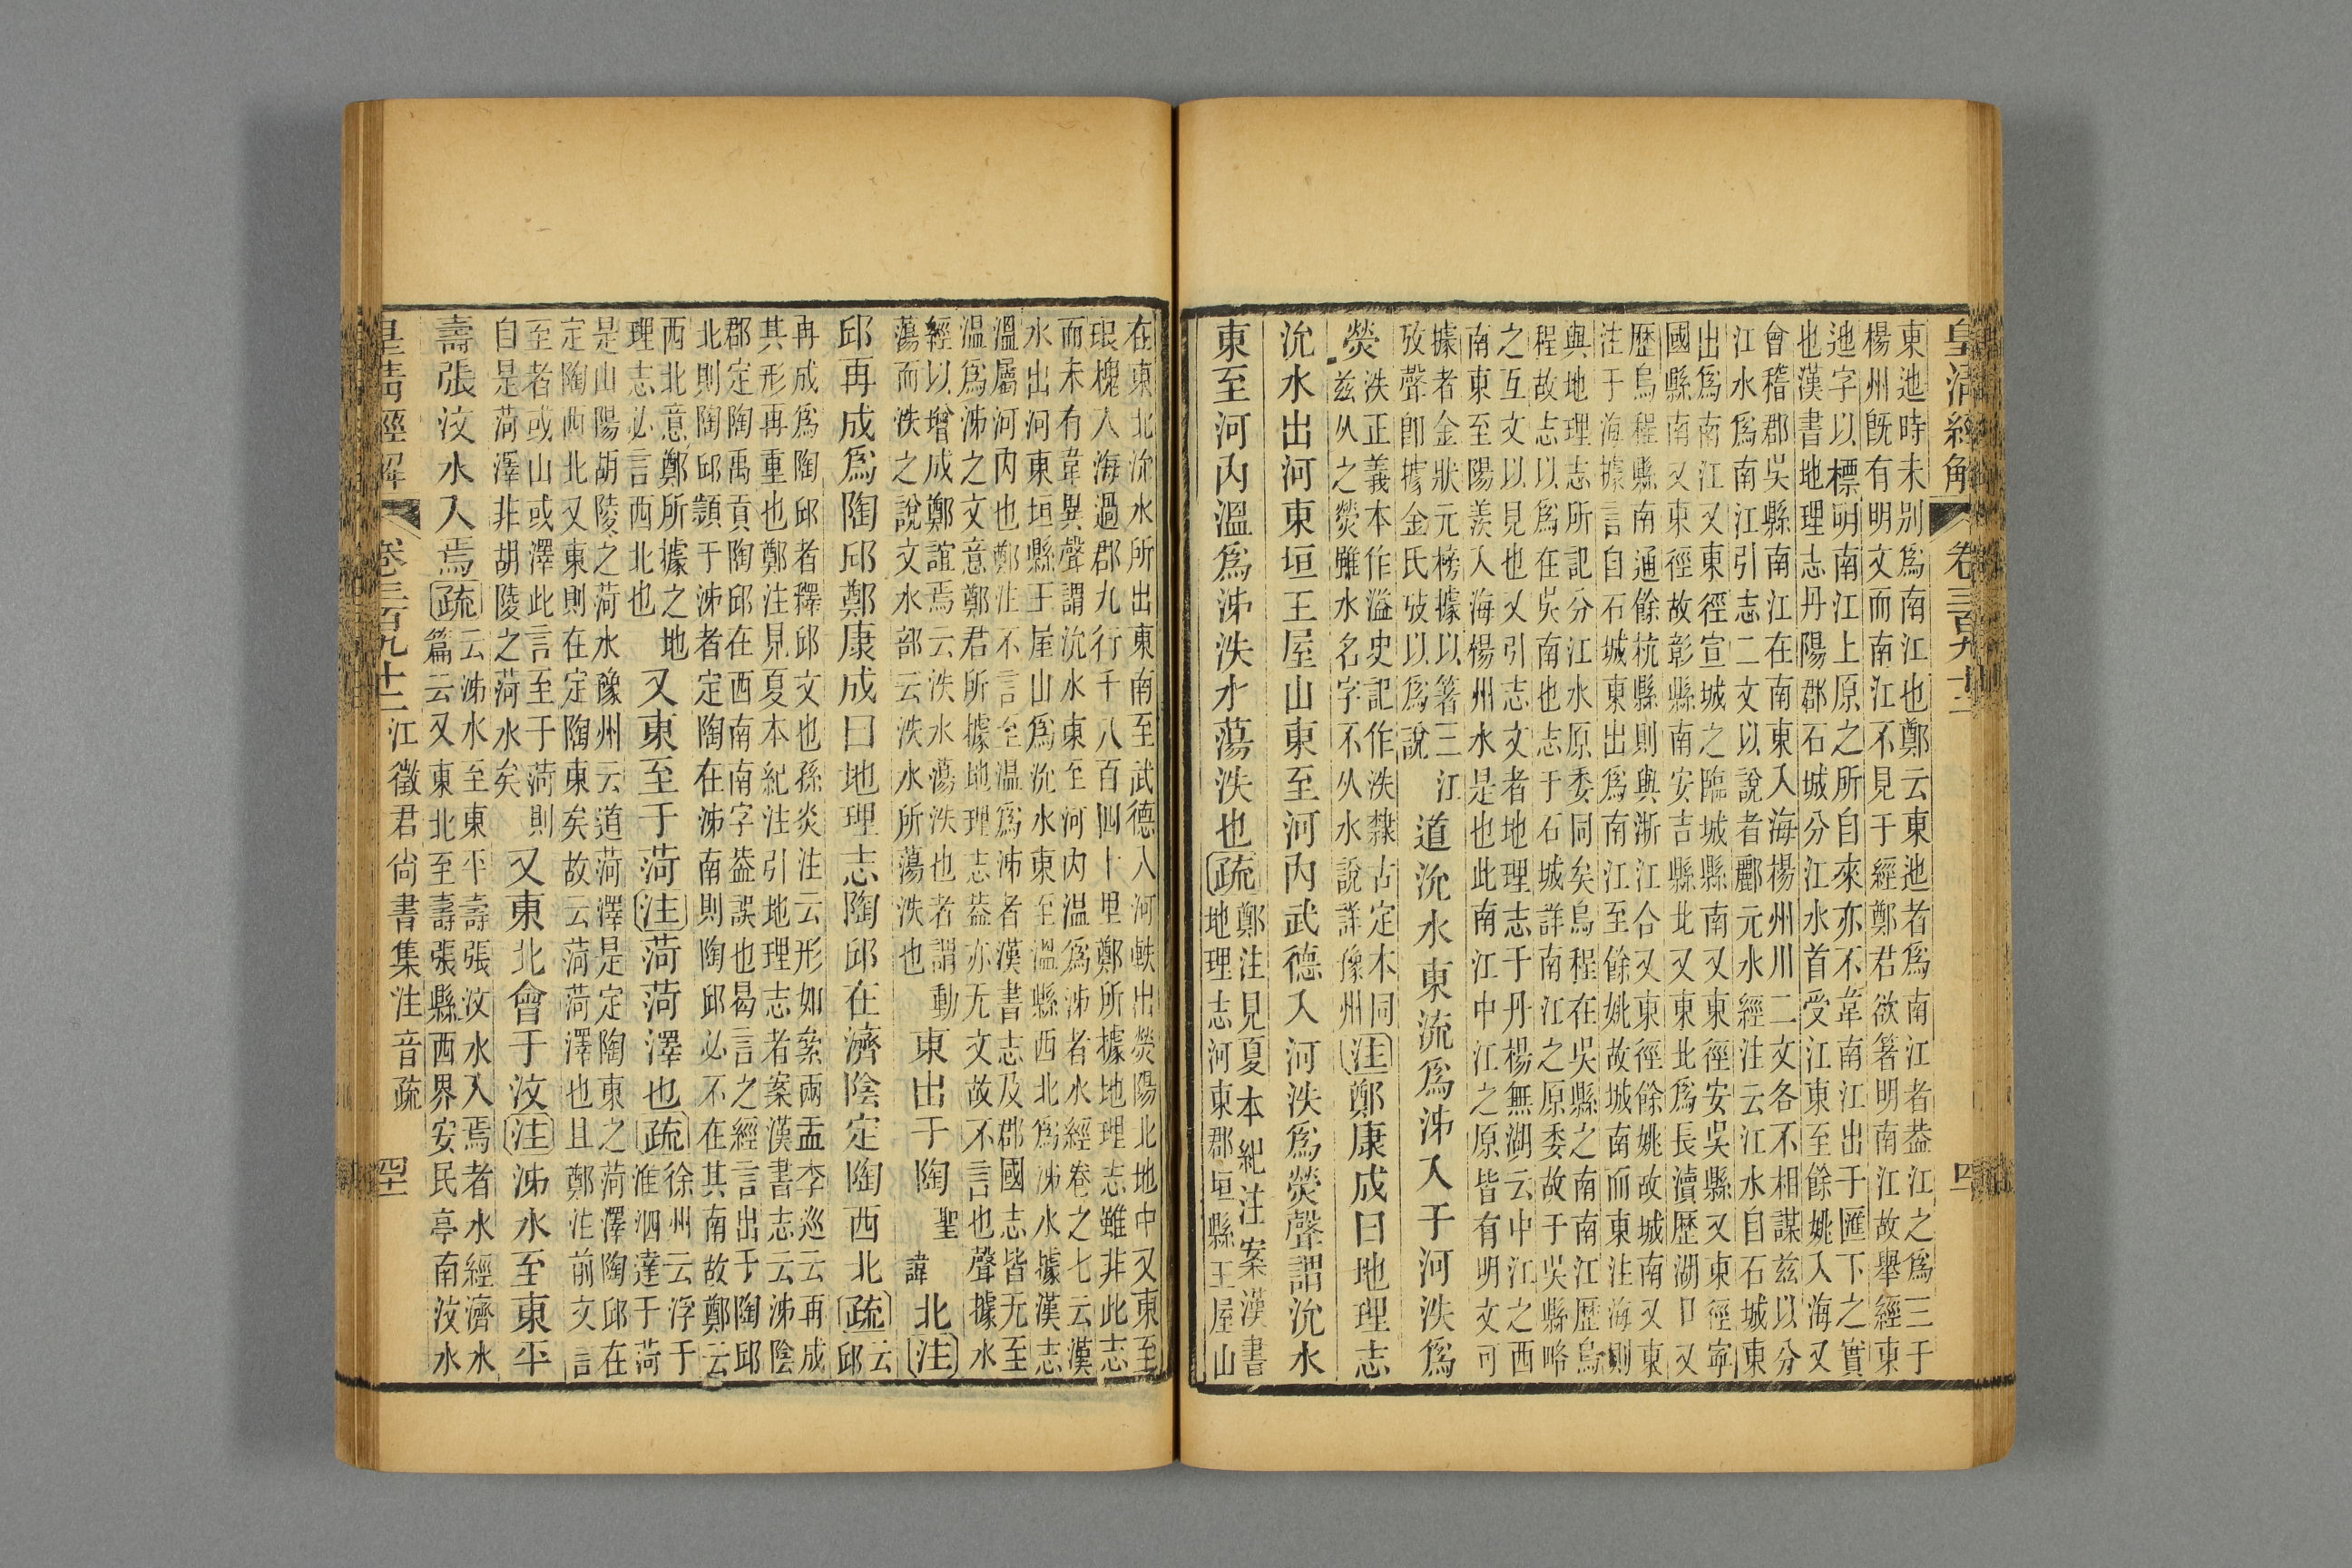 皇清經解 卷三百九十二 四
東迆時未別爲南江也鄭云東迆者爲南江者葢江之爲三于
楊州旣有明文而南江不見于經鄭君欲箸明南江故舉經東
迆字以標明南江上原之所自來亦不韋南江出于匯下之實
也漢書地理志丹陽郡石城分江水首受江東至餘姚入海又
會稽郡吳縣南江在南東入海楊州川二文各不相謀兹以分
江水爲南江引志二文以說者酈元水經注云江水自石城東
出爲南江又東徑宣城之臨城縣南又東徑安吳縣又東徑寧
國縣南又東徑故彰縣南安吉縣北又東北爲長瀆歷湖口又
歷烏程縣南通餘杭縣則與浙江合又東徑餘姚故城南又東
注于海據言自石城東出爲南江至餘姚故城南而東注海則
與地理志所記分江水原委同矣烏程在吳縣之南南江歷烏
程故志以爲在吳南也志于石城詳南江之原委故于吳縣略
之互文以見也又引志文者地理志于丹楊無湖云中江之西
南東至陽羨入海楊州水是也此南江中江之原皆有明文可
據者金狀元榜據以箸三江
攷聲卽據金氏攷以爲說
道沇水東流爲泲入于河泆爲
滎
泆正義本作溢史記作泆隸古定本同
兹从之滎雖水名字不从水說詳豫州
注鄭康成曰地理志
沇水出河東垣王屋山東至河內武德入河泆爲滎聲謂沇水
東至河內溫爲泲泆水蕩泆也疏
鄭注見夏本紀注案漢書
地理志河東郡垣縣王屋山
在東北沇水所出東南至武德入河軼出滎陽北地中又東至
琅槐入海過郡九行千八百四十里鄭所據地理志雖非此志
而未有韋異聲謂沇水東至河內溫爲泲者水經卷之七云漢
水出河東垣縣王屋山爲沇水東至溫縣西北爲泲水據漢志
溫屬河內也鄭注不言至溫爲泲者漢書志及郡國志皆无至
溫爲泲之文意鄭君所據地理志葢亦无文故不言也聲據水
經以增成鄭誼焉云泆水蕩泆也者謂動
蕩而泆之說文水部云泆水所蕩泆也
東出于陶聖諱北注
邱再成爲陶邱鄭康成曰地理志陶邱在濟陰定陶西北疏
云
邱
再成爲陶邱者釋邱文也孫炎注云形如絫兩盂李巡云再成
其形再重也鄭注見夏本紀注引地理志者案漢書志云泲陰
郡定陶禹貢陶邱在西南南字葢誤也曷言之經言出于陶邱
北則陶邱顡于泲者定陶在泲南則陶邱必不在其南故鄭云
西北意鄭所據之地
理志必言西北也
又東至于菏注菏菏澤也疏
徐州云浮于
淮泗達于菏
是山陽胡陵之菏水豫州云道菏澤是定陶東之菏澤陶邱在
定陶西北又東則在定陶東矣故云菏菏澤也且鄭注前文言
至者或山或澤此言至于菏則
自是菏澤非胡陵之菏水矣
又東北會于汶注泲水至東平
壽張汶水入焉疏
云泲水至東平壽張汶水入焉者水經濟水
篇云又東北至壽張縣西界安民亭南汶水
皇清經解 卷三百九十二 江徵君尚書集注音疏 四